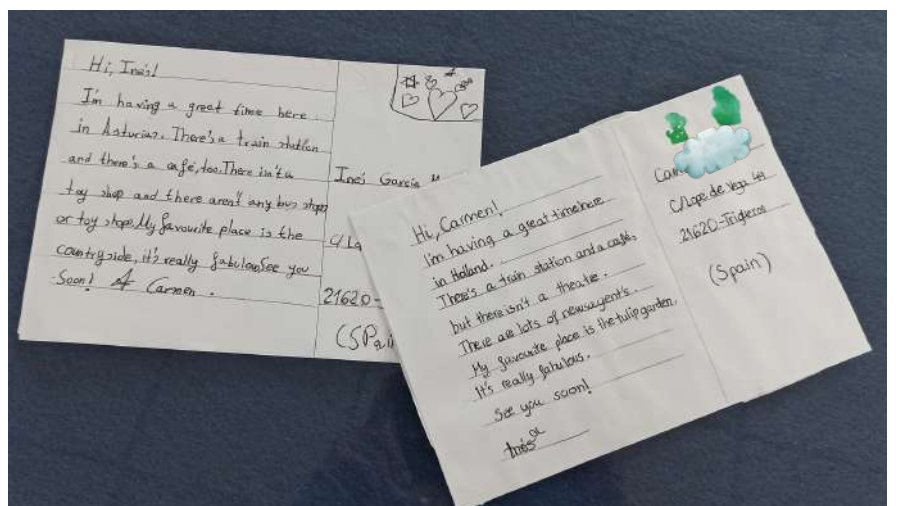 Hi, Inés!
I'm having a great time here
in Asturias. There's a train station
and there's a café, too. There isn't a
toy shop and there aren't any bus stops
or toy shops. My favourite place is the
countryside, it's really fabulous. See you
Soon! Carmen.
Inés García
C/
21620-
(Spain
Hi, Carmen!
I'm having a great time here
in Holland.
There's a train station and a café,
but there isn't a theatre.
There are lots of newsagent's.
My favourite place is the tulip garden.
It's really fabulous.
See you soon!
Inés
C/Lope de Vega 44
21620-Trigueros
(Spain)